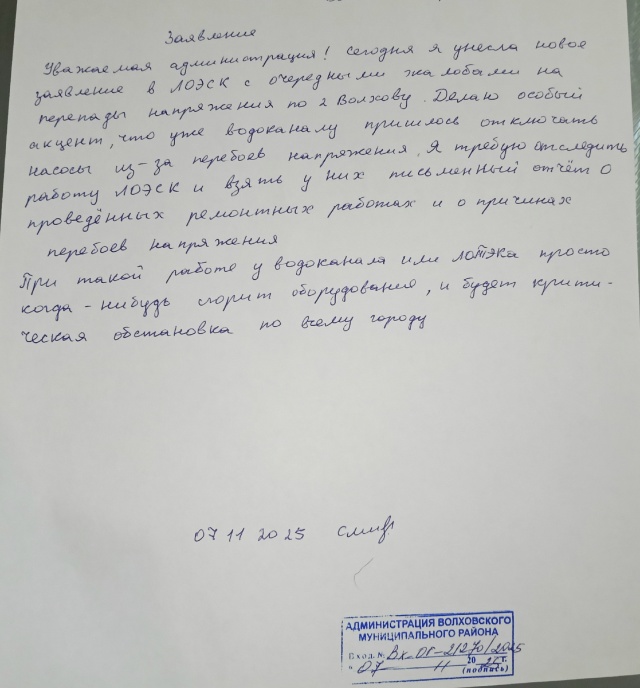 Заявление
Уважаемая администрация! Сегодня я унесла новое
заявление в ЛОЭСК с очередными жалобами на
перепады напряжения по 2 Волхову. Делаю особый
акцент, что уже водоканалу пришлось отключать
насосы из-за перебоев напряжения. Я требую отследить
работу ЛОЭСК и взять у них письменный отчёт о
проведённых ремонтных работах и о причинах
перебоев напряжения
При такой работе у водоканала или ЛОТЭКа просто
когда-нибудь сгорит оборудование, и будет крити-
ческая обстановка по всему городу
07 11 2025
АДМИНИСТРАЦИЯ ВОЛХОВСКОГО
МУНИЦИПАЛЬНОГО РАЙОНА
Вход. № Вх-ОГ-21270/2025
"07 11 2025 г.
(подпись)